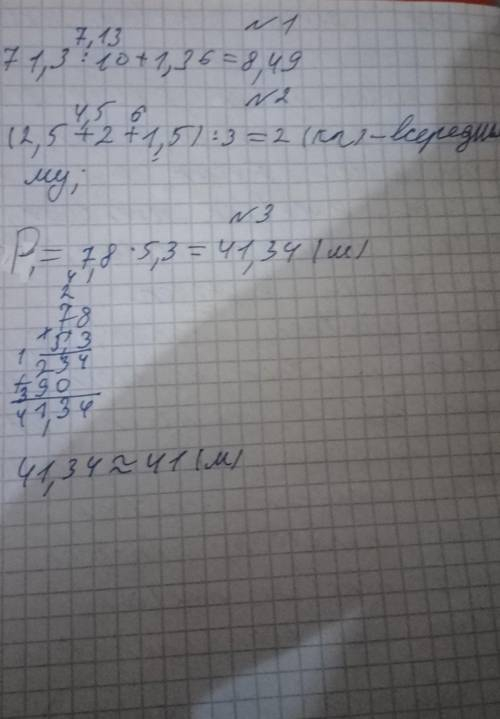 №1
7,13
71,3:10+1,36=8,49
№2
4,5 6
(2,5+2+1,5):3=2 (кг)-всередньо
му;
№3
P₁=7,8·5,3=41,34 (м)
4
2
78
×5,3
1 234
+390
41,34
41,34≈41 (м)